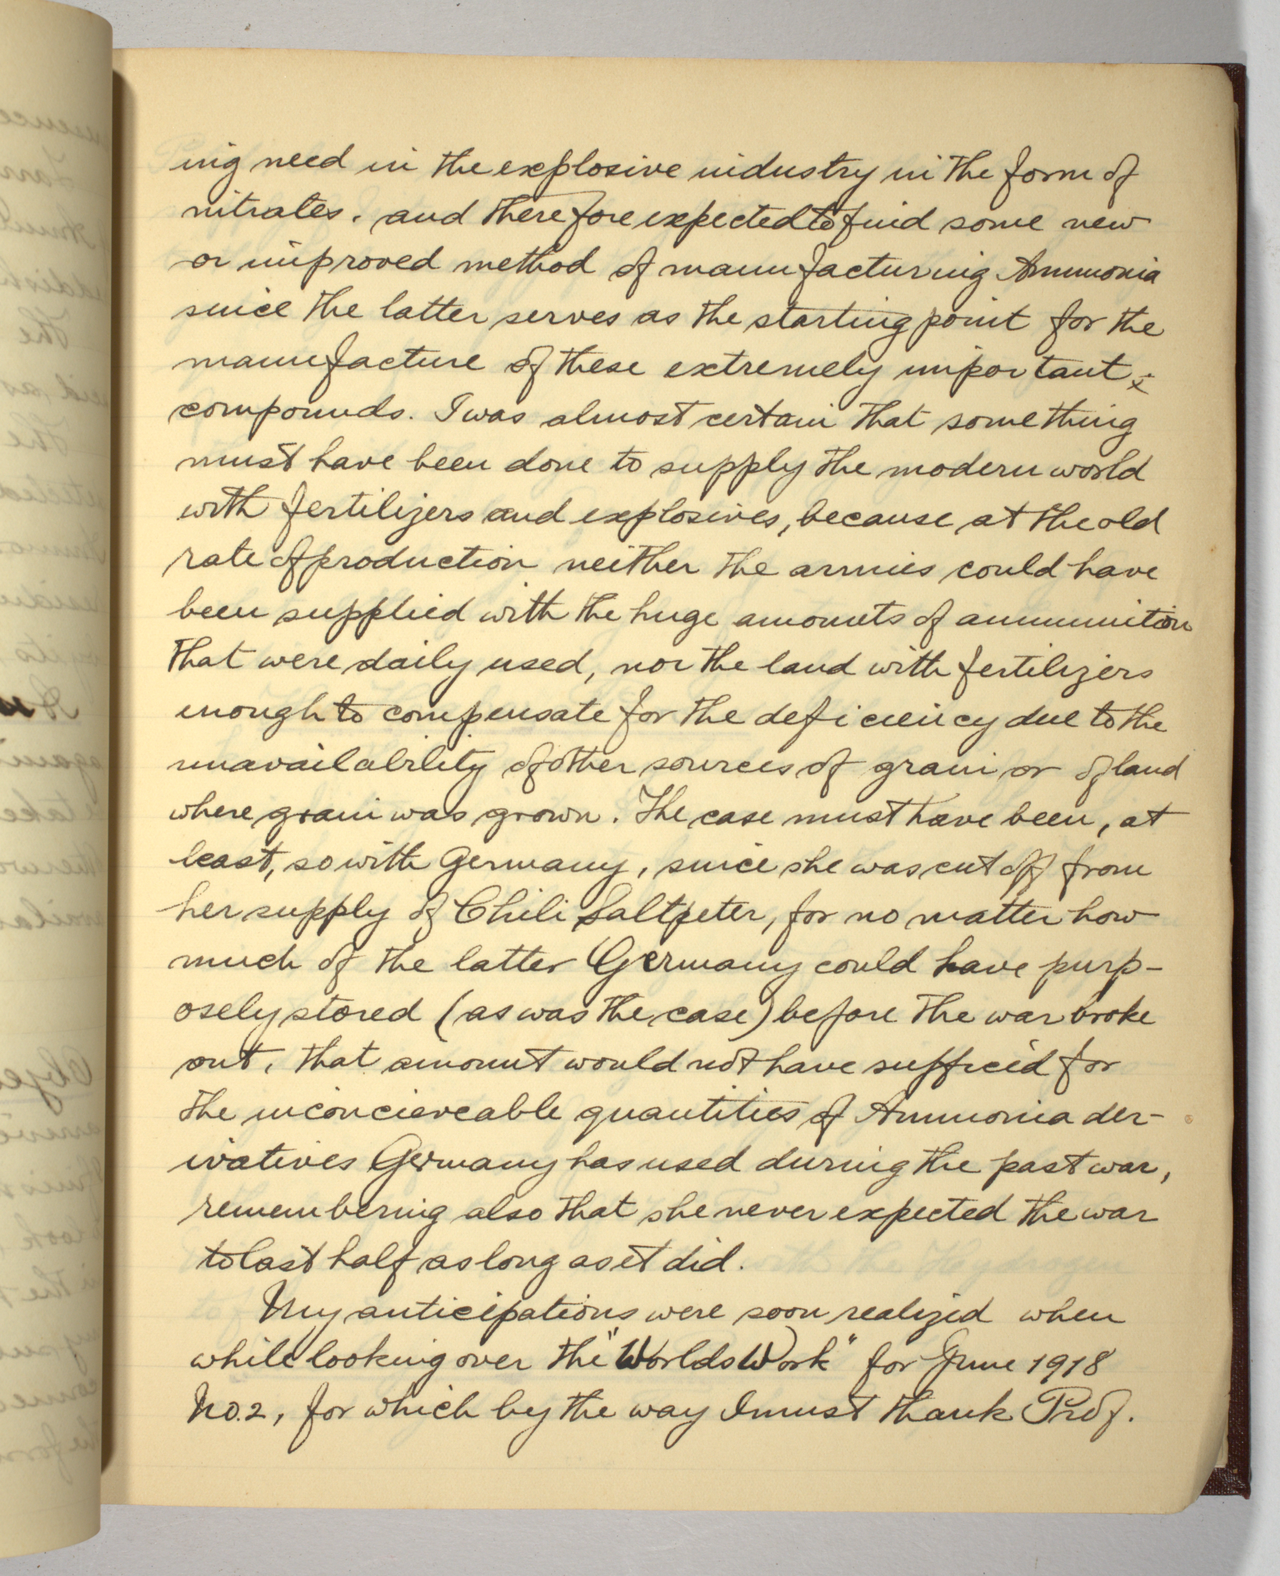 ing need in the explosive industry in the form of
nitrates. and therefore expected to find some new
or improved method of manufacturing Ammonia
since the latter serves as the starting point for the
manufacture of these extremely important
compounds. I was almost certain that something
must have been done to supply the modern world
with fertilizers and explosives, because at the old
rate of production neither the armies could have
been supplied with the huge amounts of ammunition
that were daily used, nor the land with fertilizers
enough to compensate for the deficiency due to the
unavailability of other sources of grain or of land
where grain was grown. The case must have been, at
least, so with Germany, since she was cut off from
her supply of Chili Saltpeter, for no matter how
much of the latter Germany could have purp-
osely stored (as was the case) before the war broke
out, that amount would not have sufficed for
the inconcieveable quantities of Ammonia der-
ivatives Germany has used during the past war,
remembering also that she never expected the war
to last half as long as it did.
My anticipations were soon realized when
while looking over the "Worlds Work" for June 1918
No. 2, for which by the way I must thank Prof.